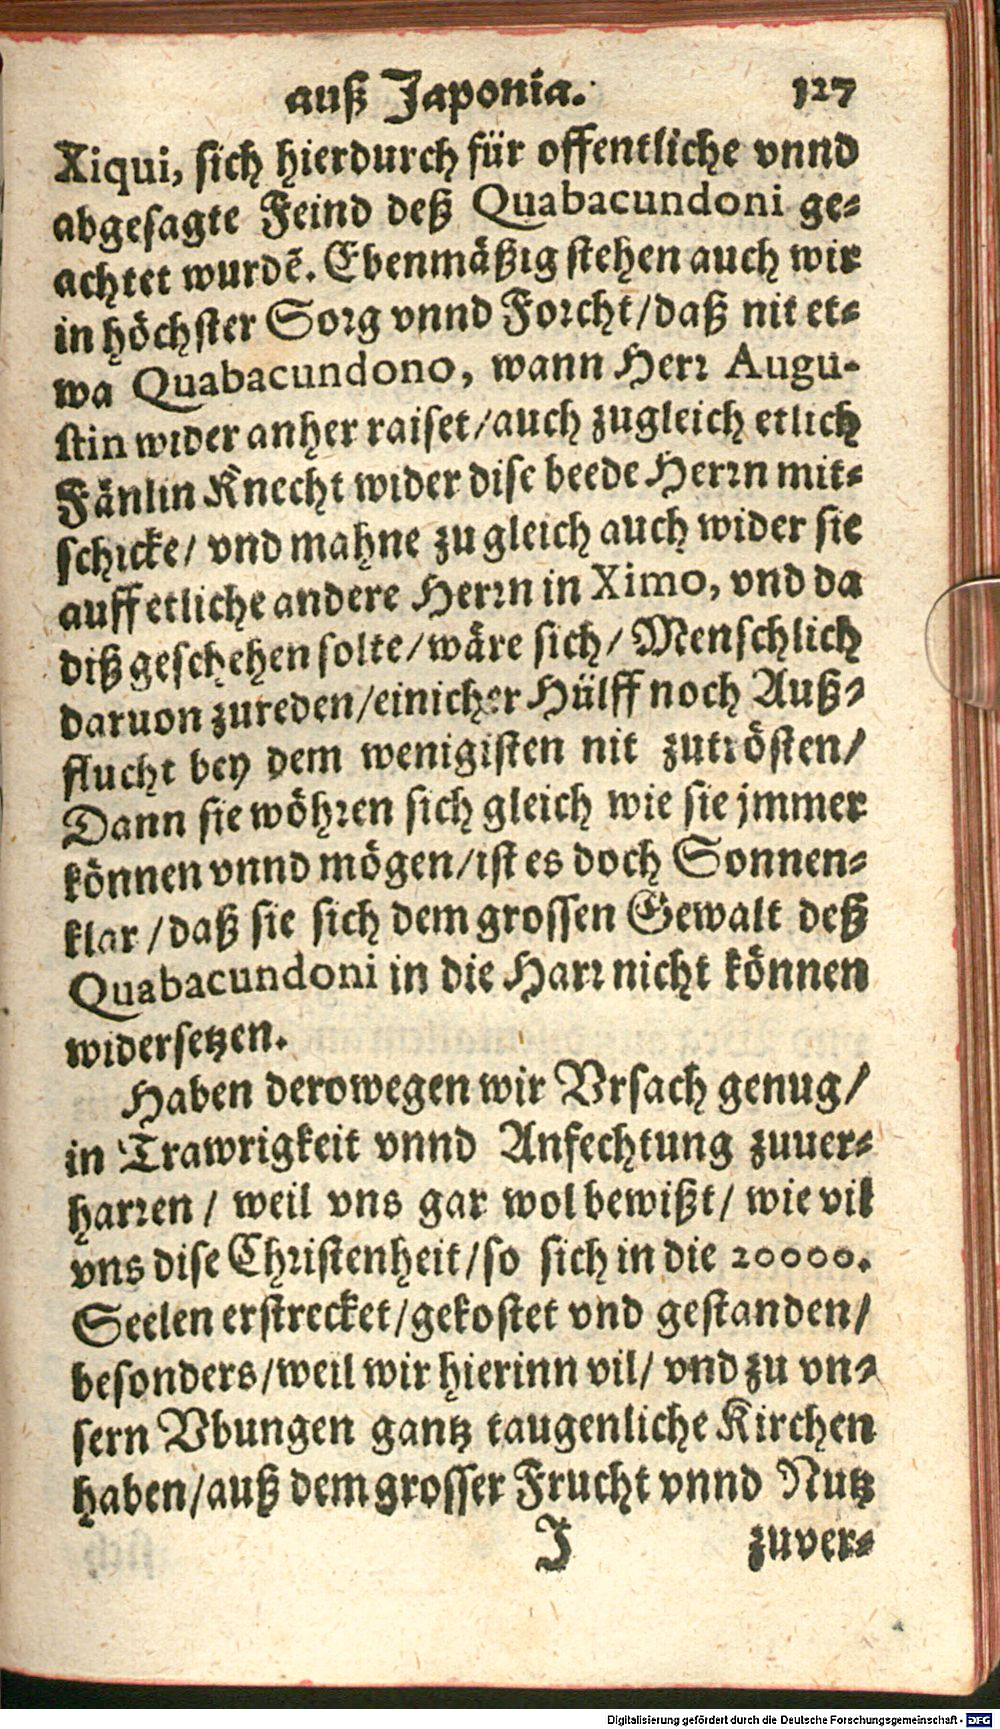 auß Japonia. 127
Xiqui, sich hierdurch für offentliche vnnd
abgesagte Feind deß Quabacundoni ge-
achtet wurdẽ. Ebenmäßig stehen auch wir
in höchster Sorg vnnd Forcht/daß nit et-
wa Quabacundono, wann Herr Augu-
stin wider anher raiset/auch zugleich etlich
Fänlin Knecht wider dise beede Herrn mit-
schicke/ vnd mahne zu gleich auch wider sie
auff etliche andere Herrn in Ximo, vnd da
diß geschehen solte/wäre sich/ Menschlich
daruon zureden/einicher Hülff noch Auß-
flucht bey dem wenigisten nit zutrösten/
Dann sie wöhren sich gleich wie sie jmmer
können vnnd mögen/ist es doch Sonnen-
klar/daß sie sich dem grossen Gewalt deß
Quabacundoni in die Harr nicht können
widersetzen.
Haben derowegen wir Vrsach genug/
in Trawrigkeit vnnd Anfechtung zuuer-
harren/ weil vns gar wol bewißt/ wie vil
vns dise Christenheit/so sich in die 20000.
Seelen erstrecket/gekostet vnd gestanden/
besonders/weil wir hierinn vil/ vnd zu vn-
sern Vbungen gantz taugenliche Kirchen
haben/auß dem grosser Frucht vnnd Nutz
J zuver-
Digitalisierung gefördert durch die Deutsche Forschungsgemeinschaft - DFG